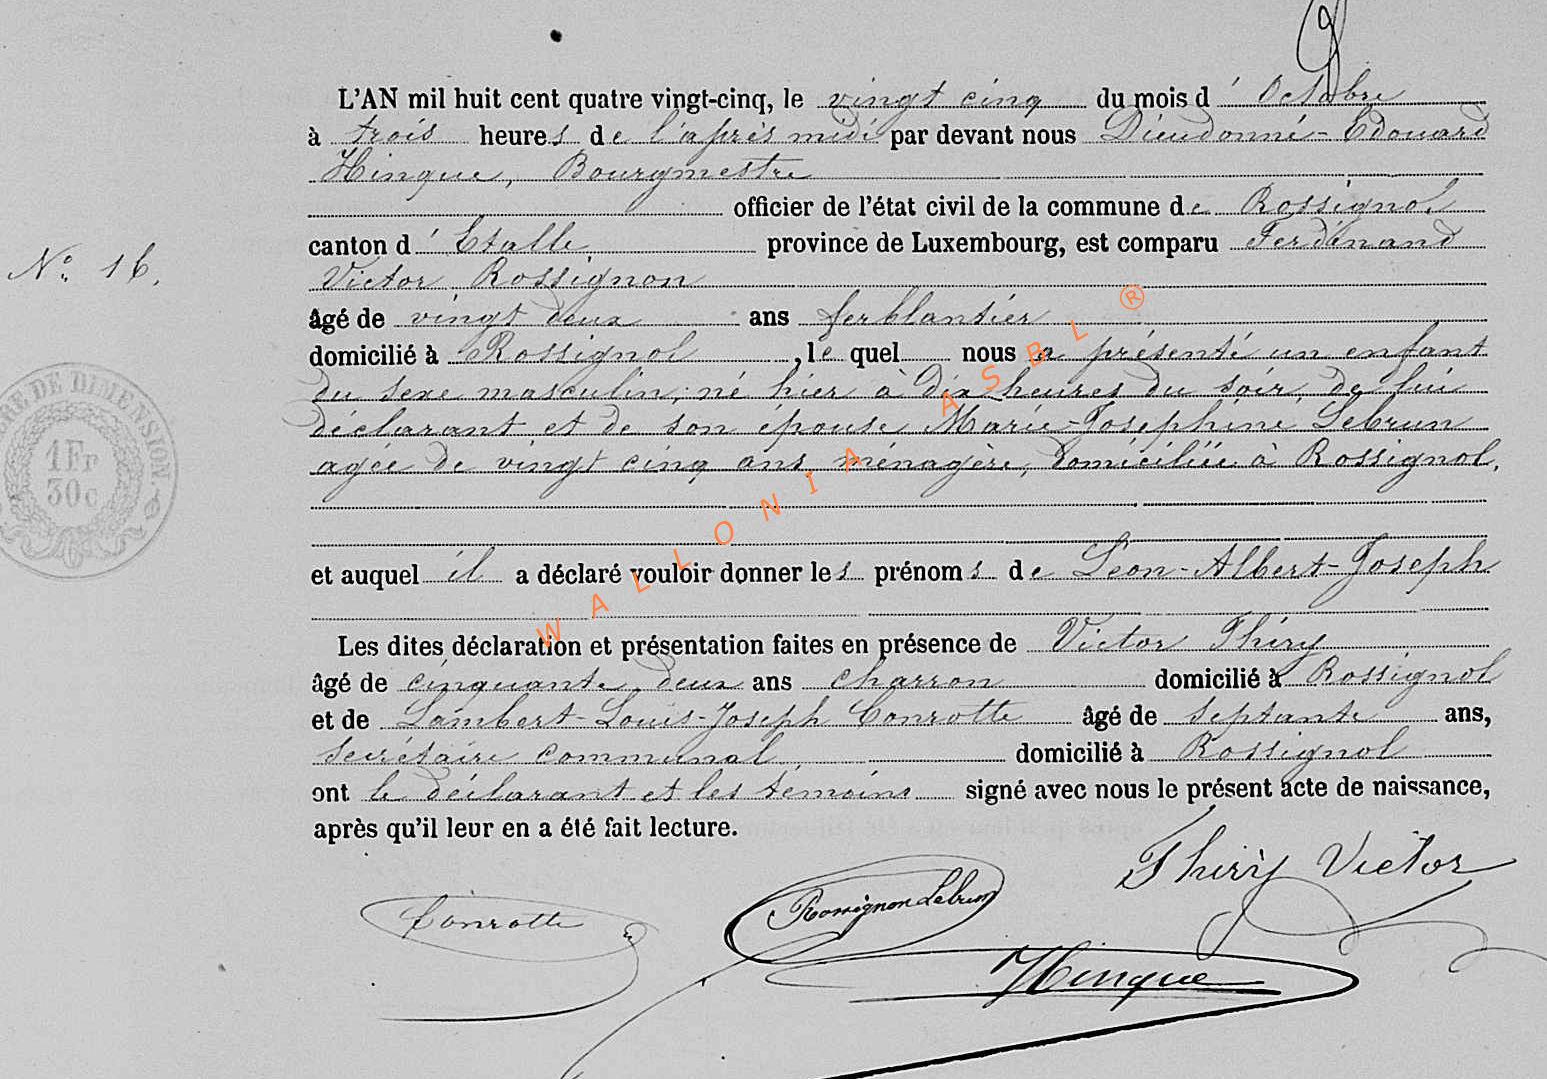 L'AN mil huit cent quatre vingt-cinq, le vingt cinq du mois d' Octobre
à trois heures de l'après midi par devant nous Dieudonné-Edouard
Hinque, Bourgmestre
officier de l'état civil de la commune de Rossignol
canton d' Etalle province de Luxembourg, est comparu Ferdinand
Victor Rossignon
N° 16.
âgé de vingt deux ans ferblantier
domicilié à Rossignol, le quel nous a présenté un enfant
du sexe masculin, né hier à dix heures du soir, de lui
déclarant et de son épouse Marie-Joséphine Lebrun
agée de vingt cinq ans, ménagère, domiciliée à Rossignol.
TIMBRE DE DIMENSION.
1Fr
30c
et auquel il a déclaré vouloir donner les prénoms de Léon-Albert-Joseph
Les dites déclaration et présentation faites en présence de Victor Thiry
âgé de cinquante deux ans charron domicilié à Rossignol
et de Lambert-Louis-Joseph Conrotte âgé de septante ans,
secrétaire communal, domicilié à Rossignol
ont le déclarant et les témoins signé avec nous le présent acte de naissance,
après qu'il leur en a été fait lecture.
Thiry Victor
Conrotte Rossignon Lebrun
Hinque
WALLONIA ASBL ®